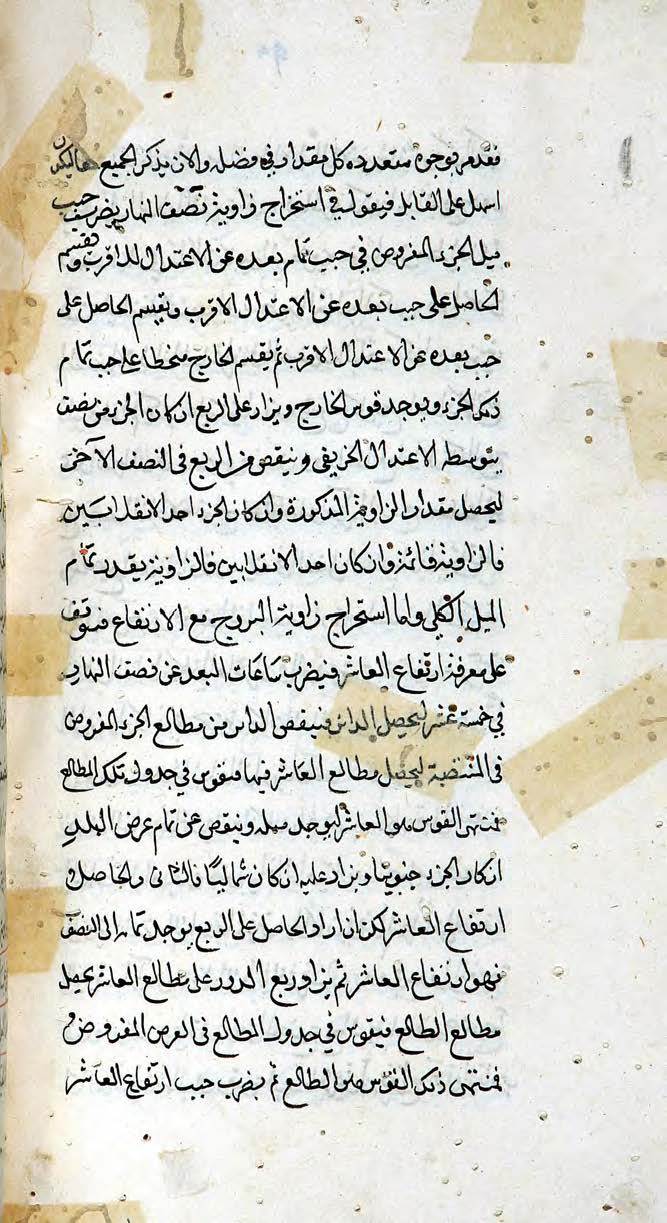 فقد مر بوجوه متعدده كل مقدار في فضله والان يذكر الجميع هنا ليكون
اسهل على القابل فيقول في استخراج زاوية نصف النهار يضرب جيب
ميل الجزء المفروض في جيب تمام بعده عن الاعتدال الاقرب ويقسم
الحاصل على جيب بعده عن الاعتدال الاقرب ويقسم الحاصل على
جيب بعده عن الاعتدال الاقرب ثم يقسم الخارج منحطا على جيب تمام
ذلك الجزء ويوجد قوس الخارج ويزاد على الربع ان كان الجزء من نصف
يتوسطه الاعتدال الخريفي وينقص من الربع في النصف الآخر
ليحصل مقدار الزاوية المذكورة وان كان الجزء احد الانقلابين
فالزاوية قائمة وان كان احد الانقلابين فالزاوية بقدر تمام
الميل الكلي واما استخراج زاوية البروج مع الارتفاع فيتوقف
على معرفة ارتفاع العاشر فيضرب ساعات البعد عن نصف النهار
في خمسة عشر ليحصل الدائر فينقص الدائر من مطالع الجزء المفروض
في المنتصبة ليحصل مطالع العاشر فيها فيقوس في جدول تلك المطالع
فمنتهى القوس هو العاشر ليوجد ميله وينقص عن تمام عرض البلد
ان كان الجزء جنوبيا ويزاد عليه ان كان شماليا فالباقي والحاصل
ارتفاع العاشر لكن ان زاد الحاصل على الربع يوجد تمامه الى النصف
فهو ارتفاع العاشر ثم يزاد ربع الدور على مطالع العاشر يحصل
مطالع الطالع فيقوس في جدول المطالع في العرض المفروض
فمنتهى ذلك القوس هو الطالع ثم يضرب جيب ارتفاع العاشر